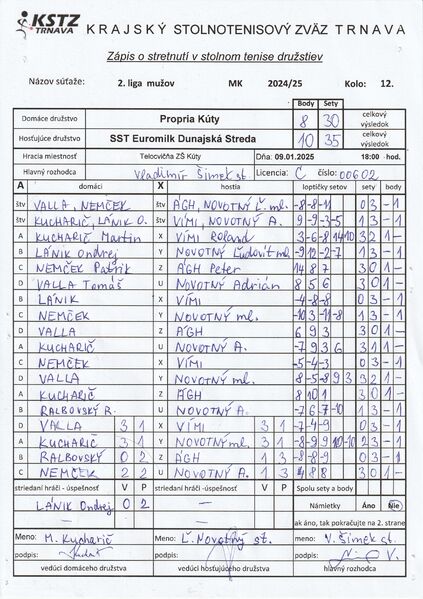 KSTZ
TRNAVA
KRAJSKÝ STOLNOTENISOVÝ ZVÄZ TRNAVA
Zápis o stretnutí v stolnom tenise družstiev
Názov súťaže: 2. liga mužov MK 2024/25 Kolo: 12.
Body Sety
Domáce družstvo Propria Kúty 8 30 celkový výsledok
Hosťujúce družstvo SST Euromilk Dunajská Streda 10 35 celkový výsledok
Hracia miestnosť Telocvičňa ZŠ Kúty Dňa: 09.01.2025 18:00 hod.
Hlavný rozhodca Vladimír Šimek st. Licencia: C číslo: 00602
A domáci X hostia loptičky setov sety body
štv VALLA, NEMČEK štv ÁGH, NOVOTNÝ Ľ. ml. -8-8-11 03 -1
štv KUCHARIČ, LÁNIK O. štv VÍMI, NOVOTNÝ A. 13 -1
A KUCHARIČ Martin X VÍMI Roland 32 1-
B LÁNIK Ondrej Y NOVOTNÝ Ľudovít ml. 13 -1
C NEMČEK Patrik Z ÁGH Peter 14 8 7 30 1-
D VALLA Tomáš U NOVOTNÝ Adrián 8 5 6 30 1-
B LÁNIK X VÍMI -4-8-8 03 -1
C NEMČEK Y NOVOTNÝ ml. -10 3 -11 -8 13 -1
D VALLA Z ÁGH 6 9 3 30 1-
A KUCHARIČ U NOVOTNÝ A. -7 9 3 6 31 1-
C NEMČEK X VÍMI -5-4-3 03 -1
D VALLA Y NOVOTNÝ ml. -8-5 8 9 3 32 1-
A KUCHARIČ Z ÁGH 8 10 1 30 1-
B RALBOVSKÝ R. U NOVOTNÝ A. -7 6 -7 -10 13 -1
D VALLA 3 1 X VÍMI 3 1 -7-4-9 03 -1
A KUCHARIČ 3 1 Y NOVOTNÝ ml. 3 1 23 -1
B RALBOVSKÝ 0 2 Z ÁGH 1 3 03 -1
C NEMČEK 2 2 U NOVOTNÝ A. 1 3 4 8 8 30 1-
striedaní hráči - úspešnosť V P striedaní hráči - úspešnosť V P Spolu sety a body
LÁNIK Ondrej 0 2 — Námietky Áno Nie
— — ak áno, tak pokračujte na 2. strane
Meno: M. Kucharič Meno: Ľ. Novotný st. Meno: V. Šimek st.
podpis: podpis: podpis:
vedúci domáceho družstva vedúci hosťujúceho družstva hlavný rozhodca